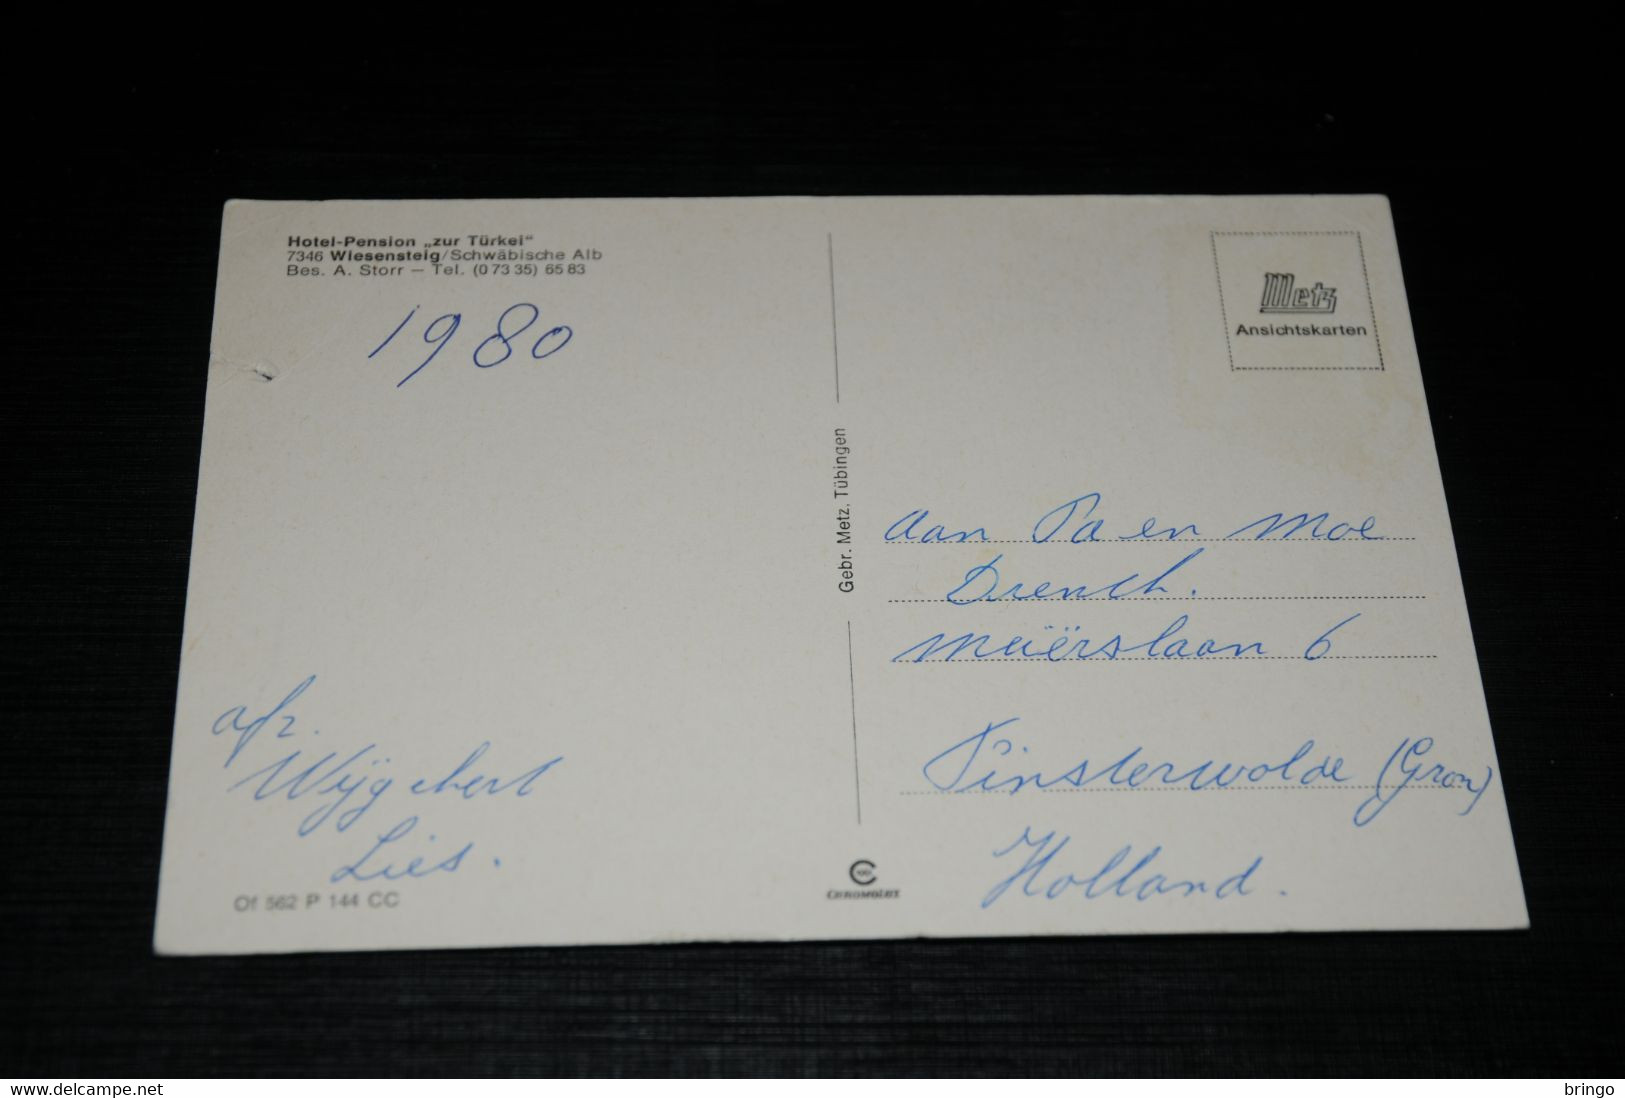 Hotel-Pension „zur Türkei“
7346 Wiesensteig/Schwäbische Alb
Bes. A. Storr – Tel. (0 73 35) 65 83
1980
afz.
Wijgchert
Lies.
Of 562 P 144 CC
Gebr. Metz, Tübingen
CHROMOLUX
Metz
Ansichtskarten
aan Pa en Moe
Drenth.
Meiërslaan 6
Finsterwolde (Gron)
Holland.
delcampe.net
bringo